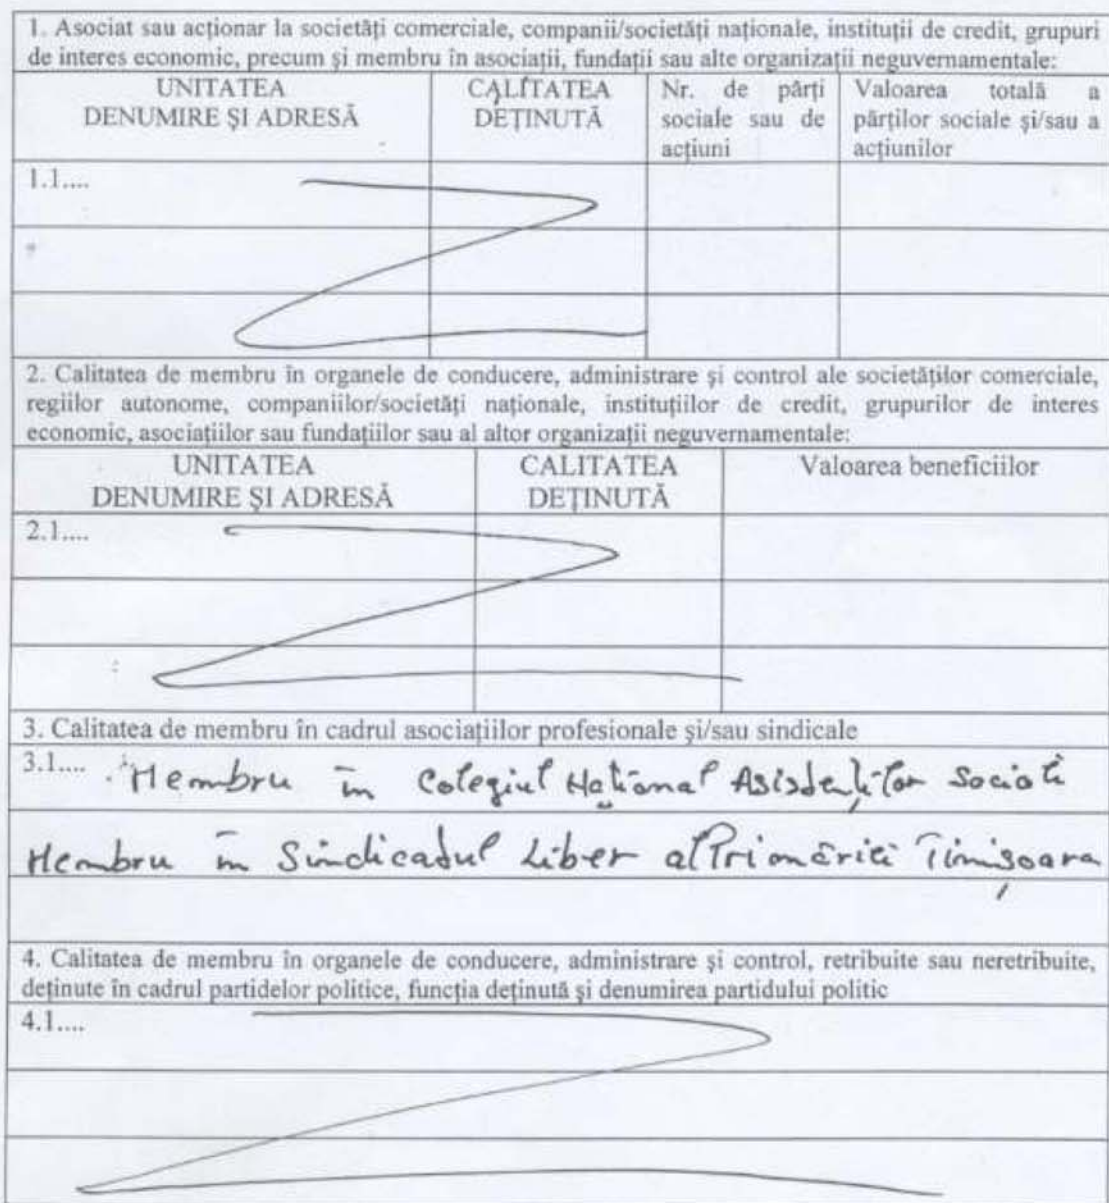 1. Asociat sau acționar la societăți comerciale, companii/societăți naționale, instituții de credit, grupuri
de interes economic, precum și membru în asociații, fundații sau alte organizații neguvernamentale:
UNITATEA
DENUMIRE ȘI ADRESĂ
CALITATEA
DEȚINUTĂ
Nr. de părți
sociale sau de
acțiuni
Valoarea totală a
părților sociale și/sau a
acțiunilor
1.1....
2. Calitatea de membru în organele de conducere, administrare și control ale societăților comerciale,
regiilor autonome, companiilor/societăți naționale, instituțiilor de credit, grupurilor de interes
economic, asociațiilor sau fundațiilor sau al altor organizații neguvernamentale:
UNITATEA
DENUMIRE ȘI ADRESĂ
CALITATEA
DEȚINUTĂ
Valoarea beneficiilor
2.1....
3. Calitatea de membru în cadrul asociațiilor profesionale și/sau sindicale
3.1.... Membru în Colegiul Național Asistenților Sociali
Membru în Sindicatul Liber al Primăriei Timișoara
4. Calitatea de membru în organele de conducere, administrare și control, retribuite sau neretribuite,
deținute în cadrul partidelor politice, funcția deținută și denumirea partidului politic
4.1....